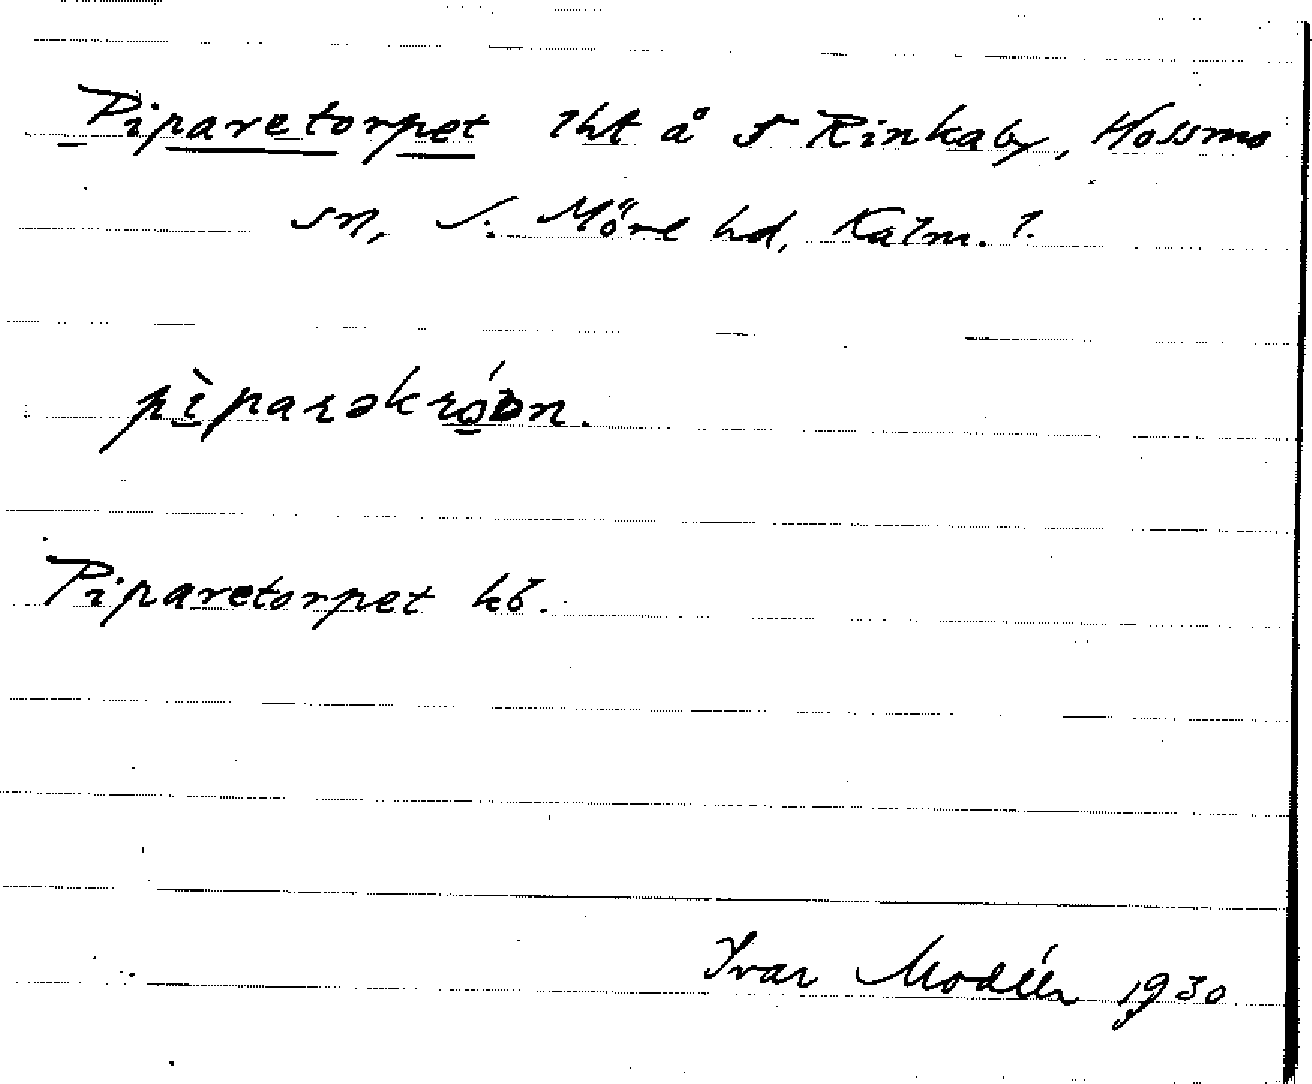 Piparetorpet lht å S Rinkaby, Hossmo
sn, S. Möre hd, Kalm. l.
pìparəkróɒn.
Piparetorpet kb.
Ivar Modéer 1930